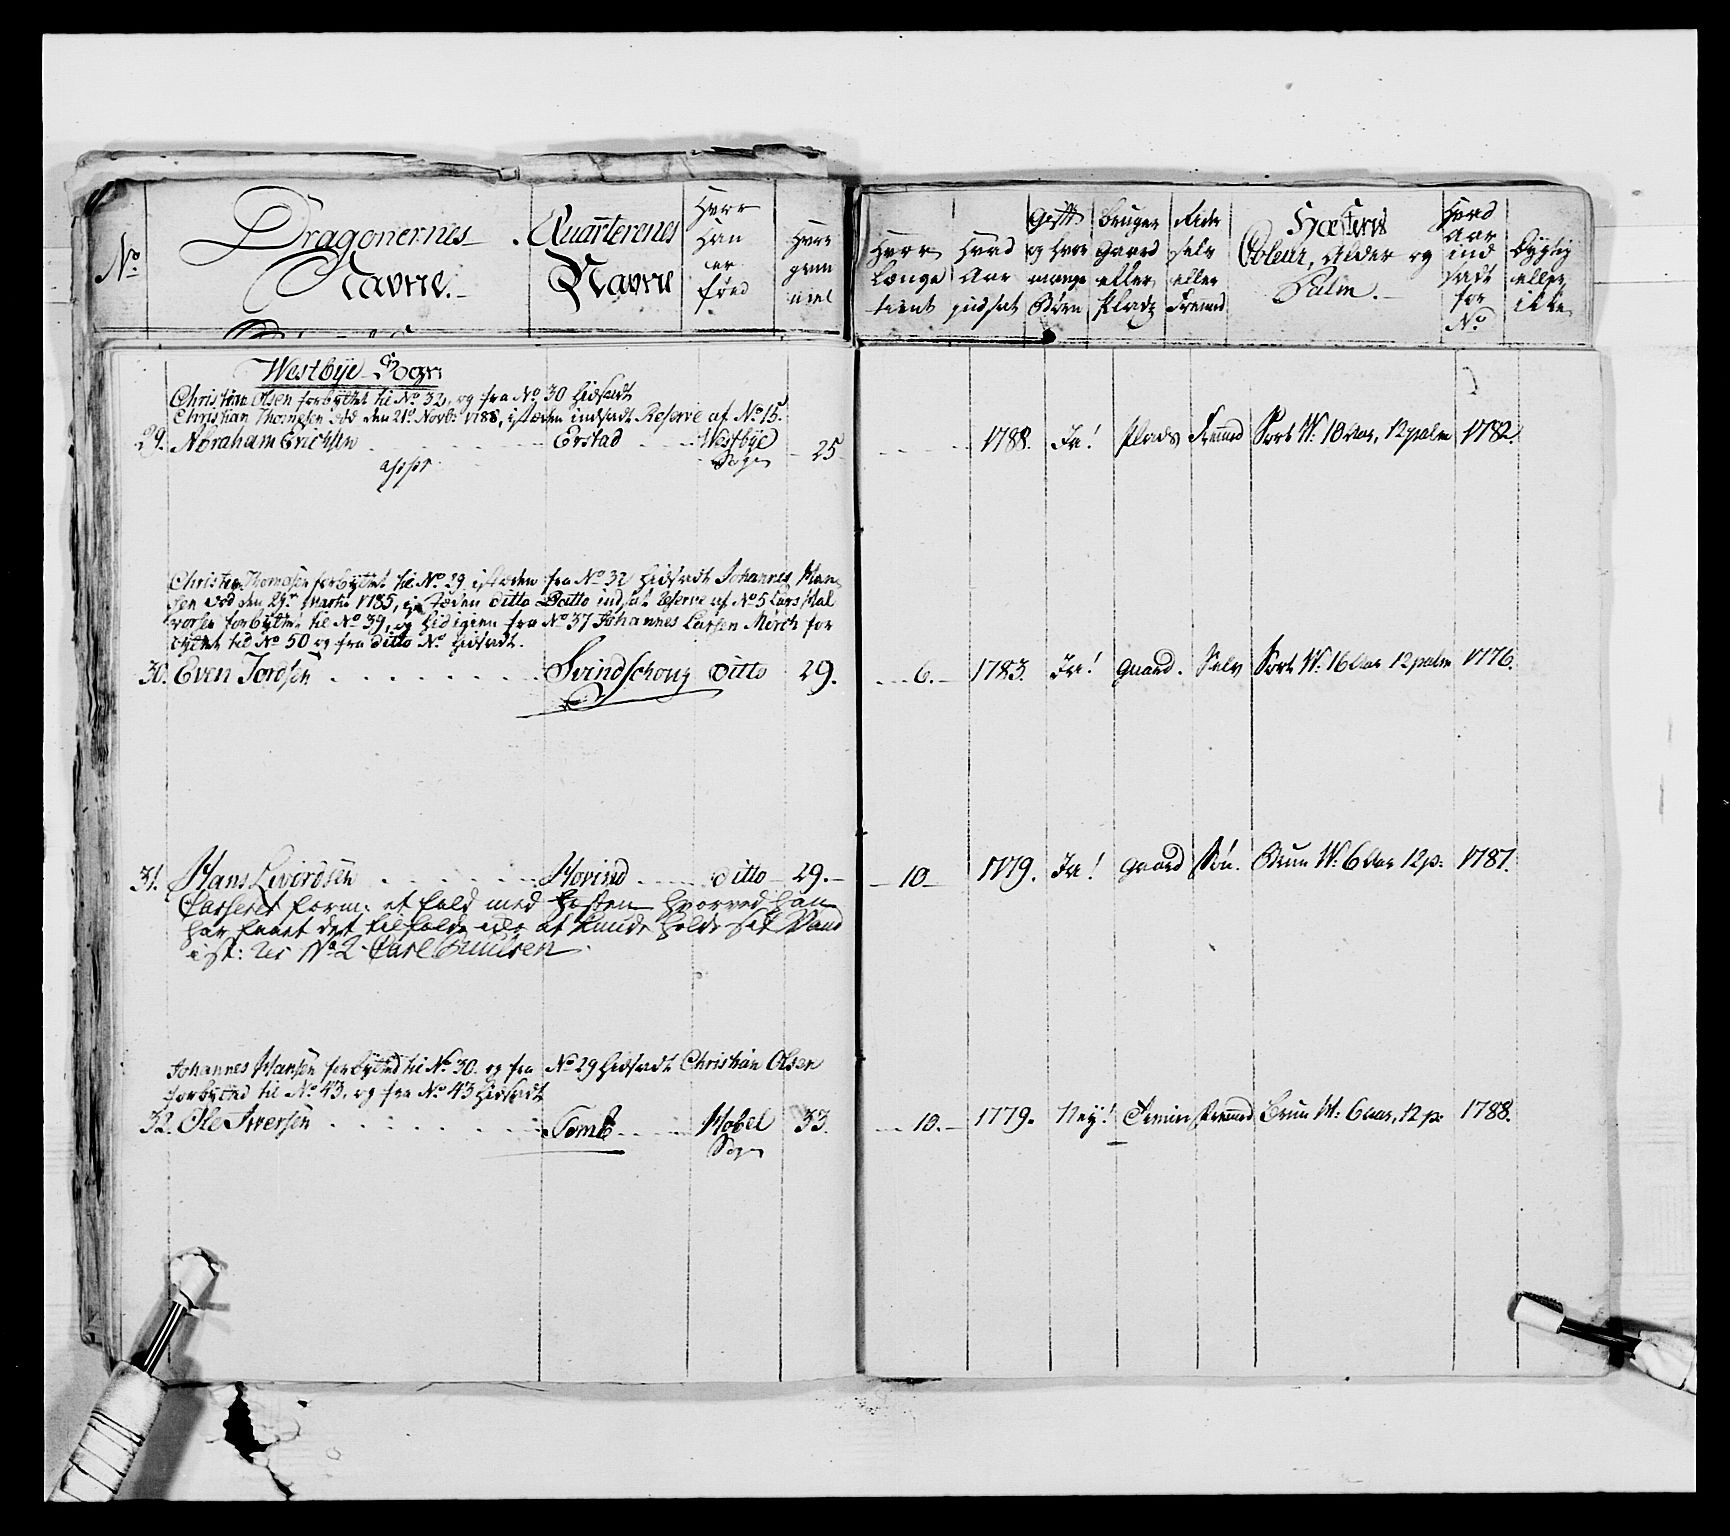 No.
Dragonernes Navne.
Quarterenes Navne
Hvor han er fød
Hvor gam̄el
Hvor længe tient
Hvad Aar indsat
Gift og hvor mange Børn
Bruger gaard eller Plads
Ride selv eller fremed
Hæstens Coleur, Alder og Palm.
Hvad Aar ind sadt for No
Dygtig eller ikke
Westbye Sogn
Christian Olsen forbyttet til No 32, og fra No 30 hidsadt
Christian Thomesen død den 21de Novbr 1788, i stæden indsadt Reserve af No 15.
29. Abraham Erichsen Erstad Westbye Sogn 25 1788. Ja! Plads Fremed Sort W: 10 Aar, 12 palm 1782.
Christen Thomasen forbyttet til No 29, istæden fra No 32 hidsadt Johannes Han
sen død den 29de Martii 1785, i stæden ditto Datto indsat Reserve af No 5 Lars Hal
vorsen forbyttet til No 39, og hid igien fra No 37 Johannes Larsen Mörch for
byttet til No 50 og fra ditto No hidsadt.
30. Even Jordsen Svindschoug ditto 29. 6. 1783. Ja! gaard. Selv Sort W: 16 Aar 12 palm 1776.
31. Hans Sivordsen Hovind ditto 29. 10 1779. Ja! gaard Søn. Brun W: 6 Aar 12 p: 1787.
Casseret form: et fald med Hesten hvorved han
har faaet det tilfælde ike at kunde holde sit Vand
i st: Res No 2 Carl Poulsen
Johannes Hansen forbytted til No 30. og fra No 29 hidsadt Christian Olsen
forbytted til No 43. og fra No 43 hidsadt
32. Ole Iversen Tomb Hobel Sogn 33. 10. 1779. Ney! Tienner fremed Brun W: 6 aar, 12 p: 1788.